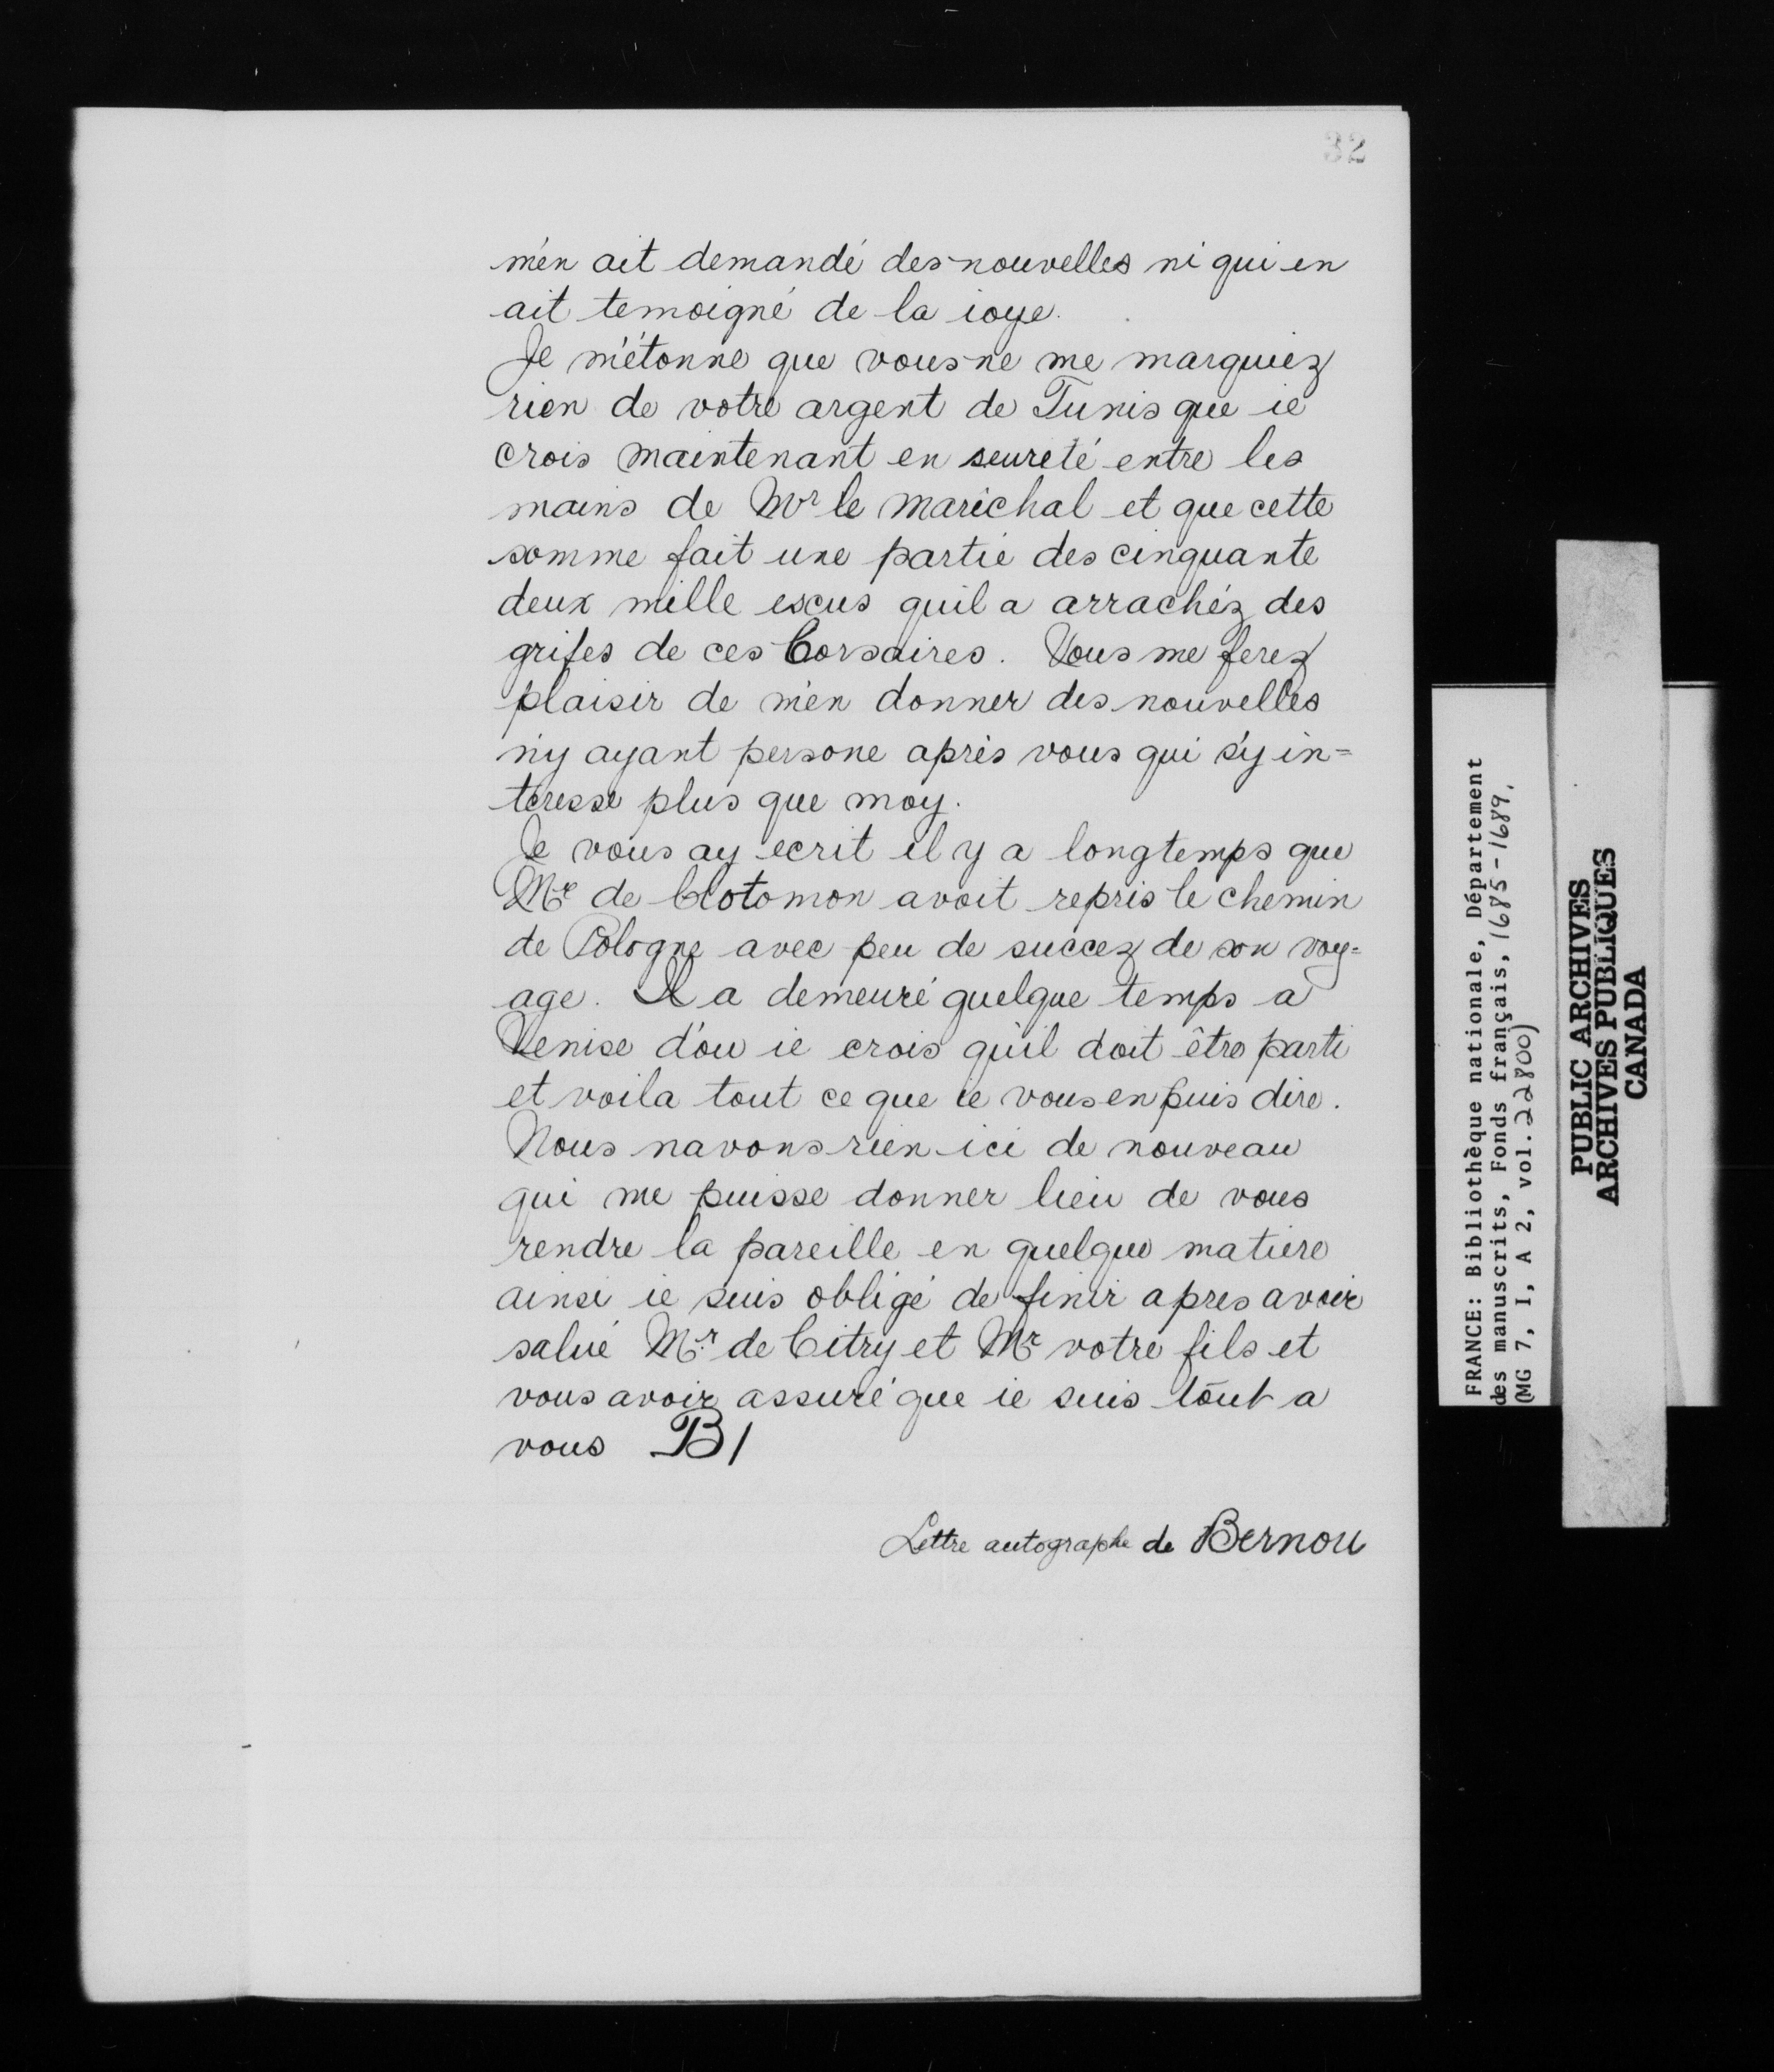 32
m'en ait demandé des nouvelles ni qui en
ait temoigné de la ioye.
Je m'étonne que vous ne me marquiez
rien de votre argent de Tunis que ie
crois maintenant en seureté entre les
mains de Mr le Maréchal et que cette
somme fait une partie des cinquante
deux mille escus quil a arrachéz des
grifes de ces Corsaires. Vous me ferez
plaisir de m'en donner des nouvelles
n'y ayant persone après vous qui s'y in=
teresse plus que moy.
Je vous ay ecrit il y a longtemps que
Mr de Clotomon avoit repris le chemin
de Pologne avec peu de succez de son voy=
age. Il a demeuré quelque temps a
Venise d'ou ie crois qu'il doit être parti
et voila tout ce que ie vous en puis dire.
Nous navons rien ici de nouveau
qui me puisse donner lieu de vous
rendre la pareille en quelque matiere
ainsi ie suis obligé de finir apres avoir
salué Mr. de Citry et Mr votre fils et
vous avoir assuré que ie suis tout a
vous B/
Lettre autographe de Bernou
FRANCE: Bibliothèque nationale, Département
des manuscrits, Fonds français, 1685-1689.
(MG 7, I, A 2, vol. 22800)
PUBLIC ARCHIVES
ARCHIVES PUBLIQUES
CANADA